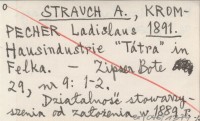 STRAUCH A., KROM-
PECHER Ladislaus 1891.
Hausindustrie "Tátra" in
Felka. — Zipser Bote
29, nr 9: 1-2.
Działalność stowarzy-
szenia od założenia w 1889 r.